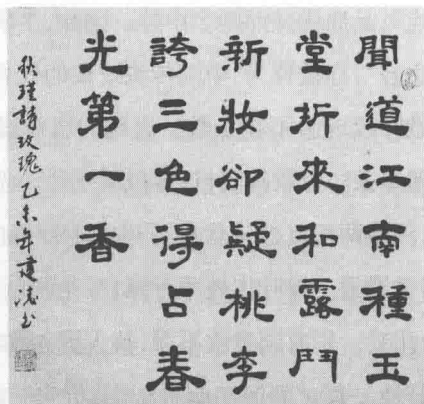 聞道江南種玉
堂折來和露鬥
新妝卻疑桃李
誇三色得占春
光第一香
秋瑾詩玫瑰乙未年建法书